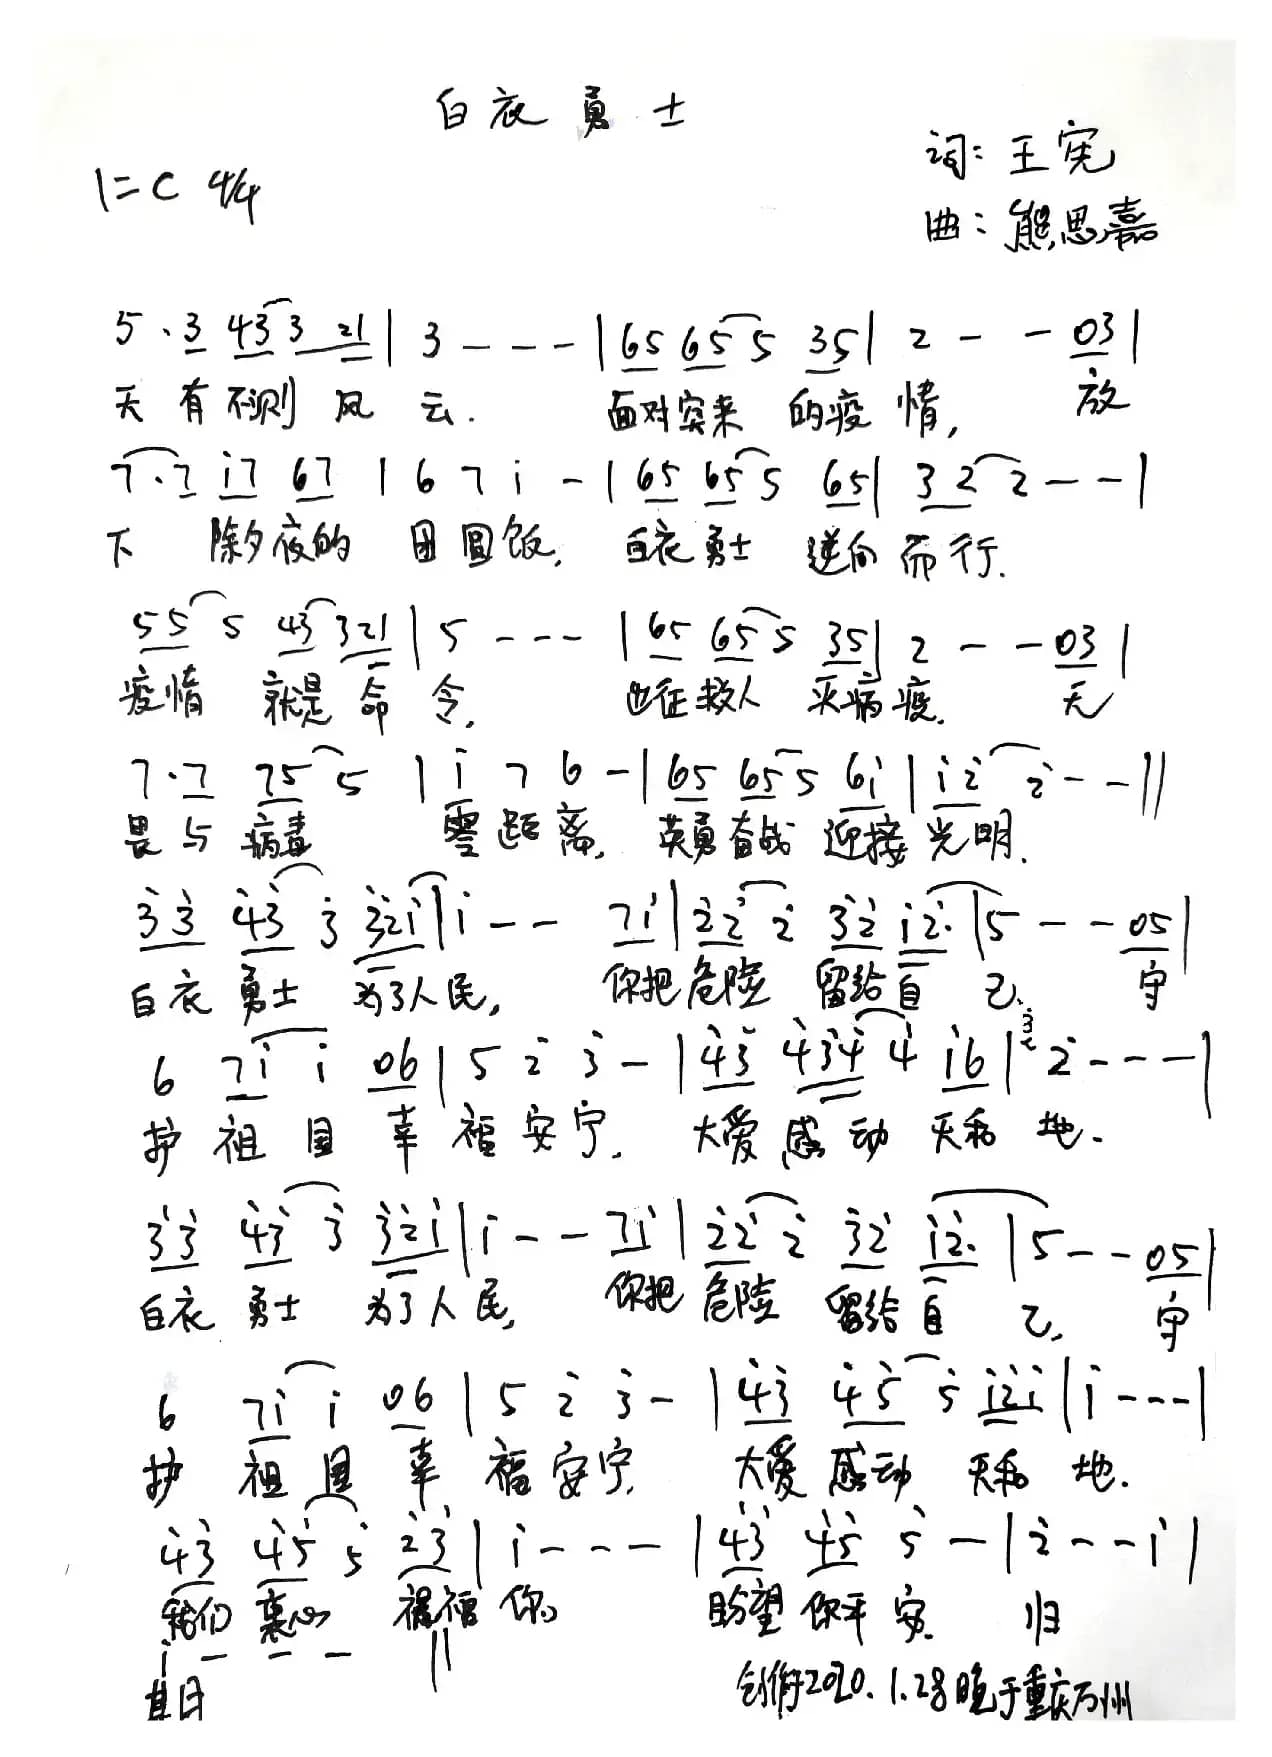 白衣勇士
1=C 4/4
词：王宪
曲：熊思嘉
5·3 43 3 21 | 3 - - - | 65 65 5 35 | 2 - - 03 |
天有不测风云. 面对突来的疫情, 放
7·7 i7 67 | 6 7 i - | 65 65 5 65 | 3 2 2 - - |
下 除夕夜的 团圆饭, 白衣勇士 逆向而行.
55 5 43 321 | 5 - - - | 65 65 5 35 | 2 - - 03 |
疫情 就是命令. 出征救人 灭病疫. 无
7·7 75 5 | i 7 6 - | 65 65 5 6i | i 2 2 - - ||
畏与病毒 零距离, 英勇奋战 迎接光明.
33 43 3 32i | i - - 7i | 22 2 32 i2· | 5 - - 05 |
白衣勇士 为了人民, 你把危险 留给自己、 守
6 7i i 06 | 5 2 3 - | 43 434 4 i6 | 3 2 - - - |
护祖国 幸福安宁. 大爱感动 天和地.
33 43 3 32i | i - - 7i | 22 2 32 i2· | 5 - - 05 |
白衣勇士 为了人民, 你把危险 留给自己, 守
6 7i i 06 | 5 2 3 - | 43 45 5 i2i | i - - - |
护祖国 幸福安宁. 大爱感动 天和地.
43 45 5 23 | i - - - | 43 45 5 - | 2 - - i |
我们衷心 祝福你. 盼望你平安. 归
i - - - ||
其日 创作于2020.1.28晚于重庆万州